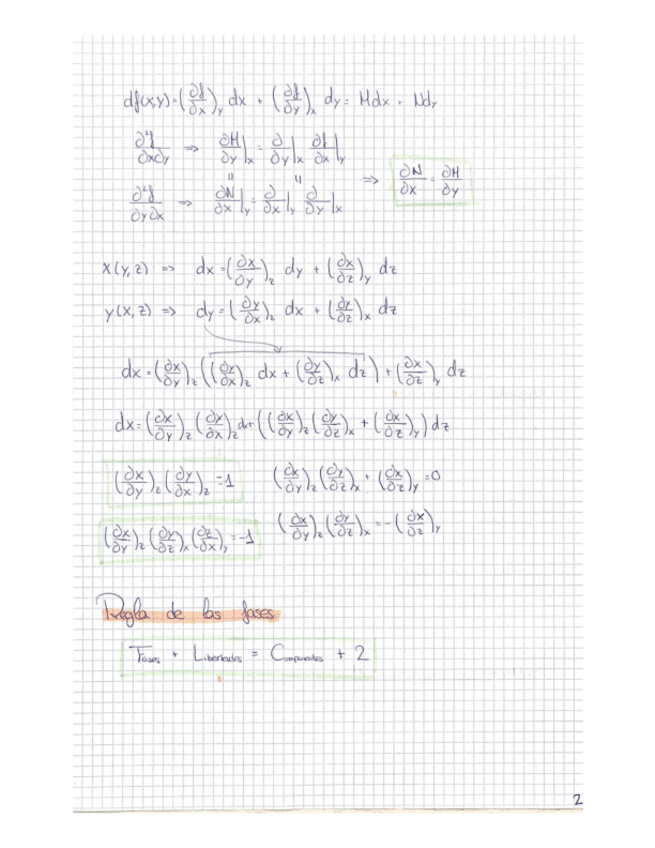 df(x,y) = (∂f/∂x)_y dx + (∂f/∂y)_x dy = Mdx + Ndy
∂²f/∂x∂y ⇒ ∂M/∂y|_x = ∂/∂y|_x ∂f/∂x|_y
" "
⇒ ∂N/∂x = ∂M/∂y
∂²f/∂y∂x ⇒ ∂N/∂x|_y = ∂/∂x|_y ∂/∂y|_x
x(y,z) ⇒ dx = (∂x/∂y)_z dy + (∂x/∂z)_y dz
y(x,z) ⇒ dy = (∂y/∂x)_z dx + (∂y/∂z)_x dz
dx = (∂x/∂y)_z ((∂y/∂x)_z dx + (∂y/∂z)_x dz) + (∂x/∂z)_y dz
dx = (∂x/∂y)_z (∂y/∂x)_z dx + ((∂x/∂y)_z (∂y/∂z)_x + (∂x/∂z)_y) dz
(∂x/∂y)_z (∂y/∂x)_z = 1 (∂x/∂y)_z (∂y/∂z)_x + (∂x/∂z)_y = 0
(∂x/∂y)_z (∂y/∂z)_x (∂z/∂x)_y = -1 (∂x/∂y)_z (∂y/∂z)_x = -(∂x/∂z)_y
Regla de las fases
Fases + Libertades = Componentes + 2
2